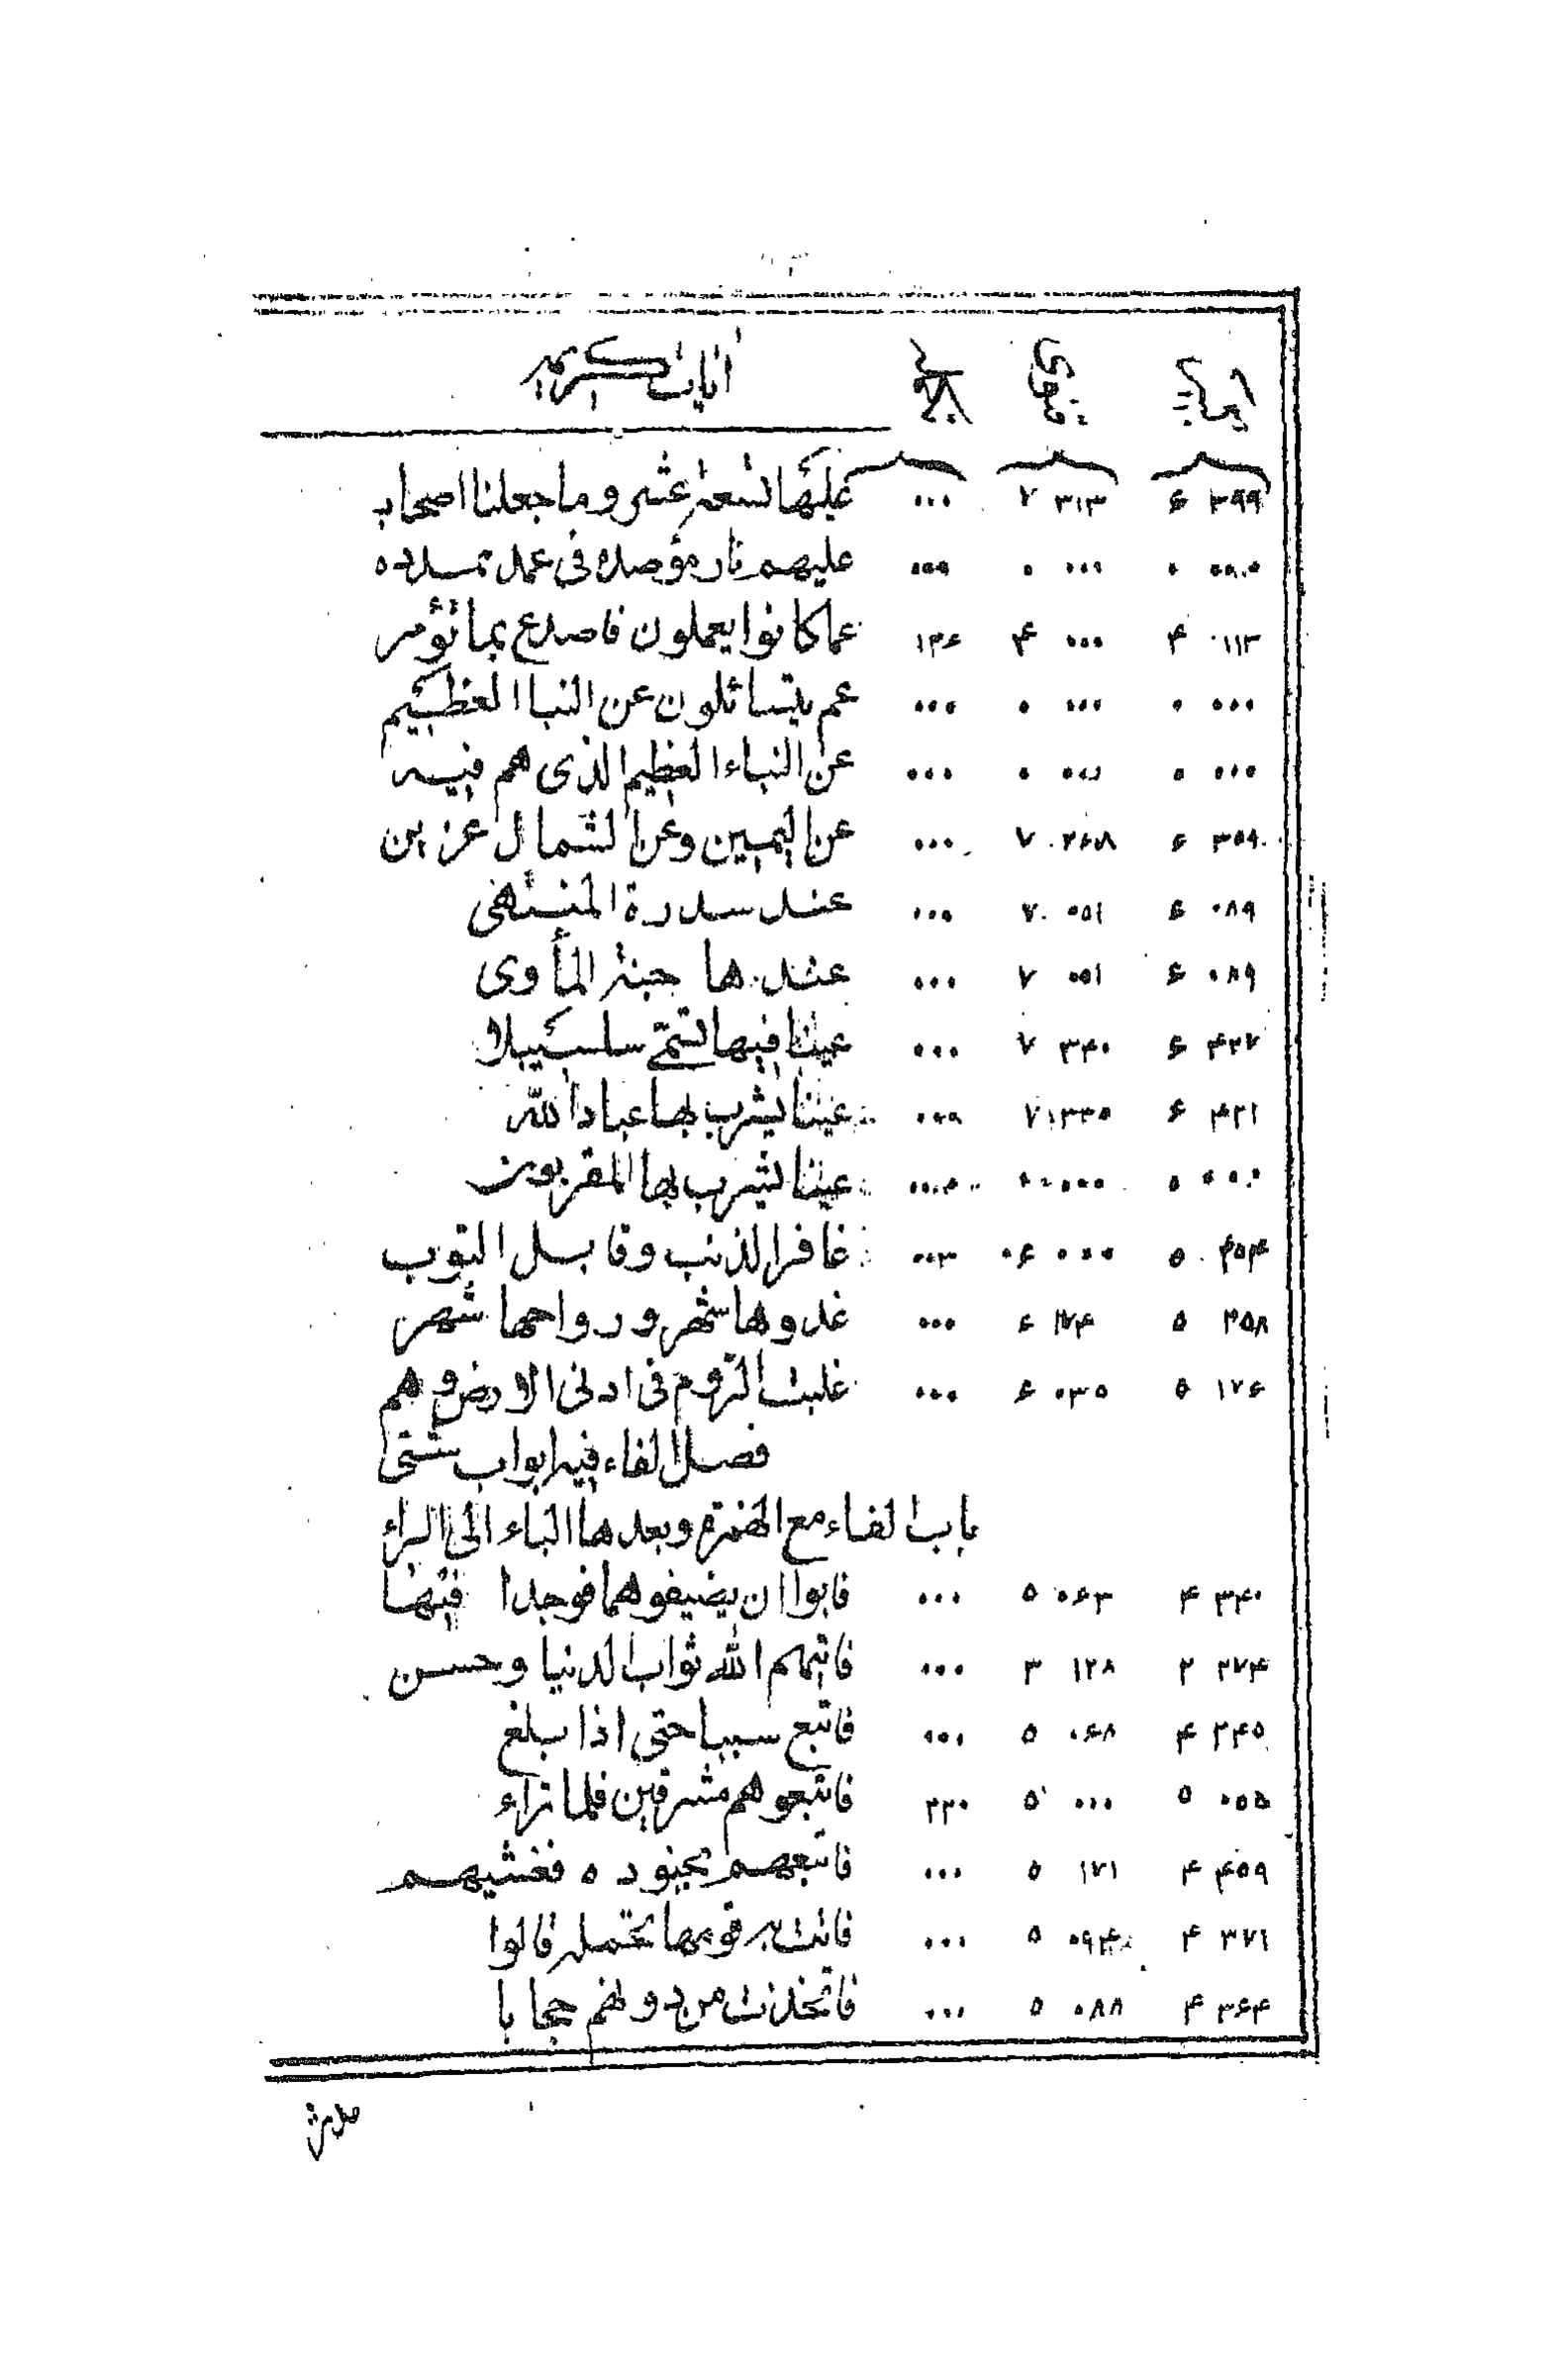 آیات کریمه
۳۹۹ ۶ ۳۱۳ ۷ ۰۰۰ علیها تسعة عشر وما جعلنا اصحاب
۰۰۰ ۰ ۰۰۰ ۰ ۰۰۰ علیهم نار مؤصده فی عمد ممدده
۱۱۳ ۴ ۰۰۰ ۴ ۱۳۶ عما کانوا یعملون فاصدع بما تؤمر
۰۰۰ ۰ ۰۰۰ ۰ ۰۰۰ عم یتسائلون عن النبا العظیم
۰۰۰ ۰ ۰۰۰ ۰ ۰۰۰ عن النباء العظیم الذی هم فیه
۳۵۹ ۶ ۲۶۸ ۷ ۰۰۰ عن الیمین وعن الشمال عزین
۰۸۹ ۶ ۰۵۱ ۷ ۰۰۰ عند سدرة المنتهی
۰۸۹ ۶ ۰۵۱ ۷ ۰۰۰ عندها جنة المأوی
۴۲۷ ۶ ۳۴۰ ۷ ۰۰۰ عینا فیها تسمی سلسبیلا
۴۲۱ ۶ ۳۳۵ ۷ ۰۰۰ عینا یشرب بها عباد الله
۰۰۰ ۰ ۰۰۰ ۰ ۰۰۰ عینا یشرب بها المقربون
۴۵۴ ۵ ۰۰۰ ۶ ۰۰۳ غافر الذنب وقابل التوب
۳۵۸ ۵ ۱۷۴ ۶ ۰۰۰ غدوها شهر ورواحها شهر
۱۷۶ ۵ ۰۳۵ ۶ ۰۰۰ غلبت الروم فی ادنی الارض وهم
فصل الفاء فیه ابواب شتی
باب الفاء مع الهمزة وبعدها الباء الی الراء
۳۴۰ ۴ ۰۶۳ ۵ ۰۰۰ فابوا ان یضیفوهما فوجدا فیها
۲۷۴ ۲ ۱۲۸ ۳ ۰۰۰ فاتیهم الله ثواب الدنیا وحسن
۳۴۵ ۴ ۰۶۸ ۵ ۰۰۰ فاتبع سببا حتی اذا بلغ
۰۵۵ ۵ ۰۰۰ ۵ ۲۳۰ فاتبعوهم مشرقین فلما تراء
۴۵۹ ۴ ۱۷۱ ۵ ۰۰۰ فاتبعهم بجنوده فغشیهم
۳۷۱ ۴ ۰۹۴ ۵ ۰۰۰ فاتت به قومها تحمله قالوا
۳۶۴ ۴ ۰۸۸ ۵ ۰۰۰ فاتخذت من دونهم حجابا